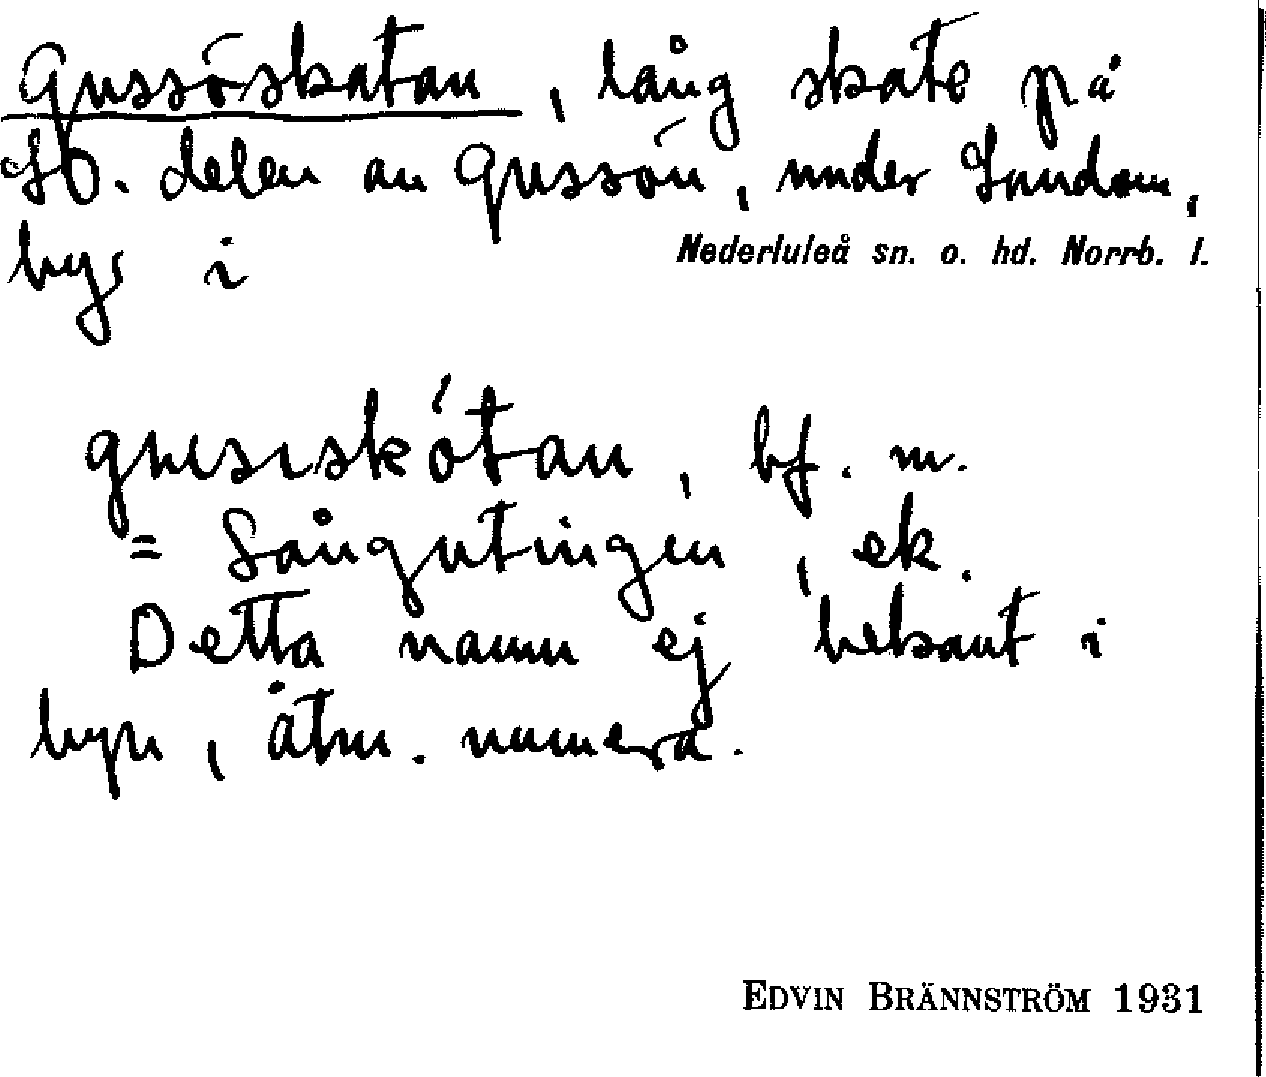 Gussöskatan, lång skate på
SO. delen av Gussön, under Sundom,
bys i Nederluleå sn. o. hd. Norrb. l.
gusıskótan, bf. m.
= Långutingen, ek.
Detta namn ej bekant i
byn, åtm. numera.
EDVIN BRÄNNSTRÖM 1931